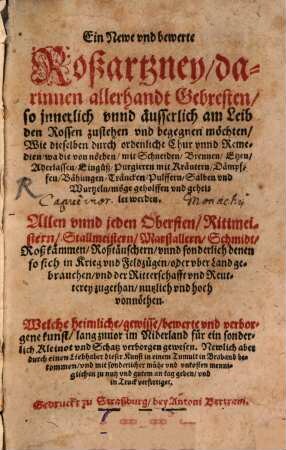 Ein Newe vnd bewerte
Roßartzney/da-
rinnen allerhandt Gebresten/
so jnnerlich vnnd äusserlich am Leib
den Rossen zustehen vnd begegnen möchten/
Wie dieselben durch ordenliche Chur vnnd Reme-
dien/wa die von nöthen/mit Schneiden/Brennen/Etzen/
Aderlassen/Eingüß/Purgiern mit Kräutern/Dämpf-
fen/Bähungen/Träncken/Pulffern/Salben vnd
Wurtzeln/möge geholffen vnd geheil-
let werden.
Capucinor. Monachij
Allen vnnd jeden Obersten/Rittmei-
stern/Stallmeistern/Marstallern/Schmidt/
Roßkämmen/Roßtäuschern/vnnd sonderlich denen
so sich in Krieg vnd Feldzügen/oder vber Land ge-
brauchen/vnd der Ritterschafft vnd Reut-
terey zugethan/nutzlich vnd hoch
vonnöthen.
Welche heimliche/gewisse/bewerte vnd verbor-
gene kunst/lang zuuor im Niderland für ein sonder-
lich Kleinot vnd Schatz verborgen gewesen. Newlich aber
durch einen Liebhaber dieser Kunst in einem Tumult in Braband be-
kommen/vnd mit sonderlicher mühe vnd vnkosten mennig-
glichen zu nutz vnd gutem an tag geben/vnd
in Truck verfertiget.
Gedruckt zu Straßburg/bey Antoni Bertram.